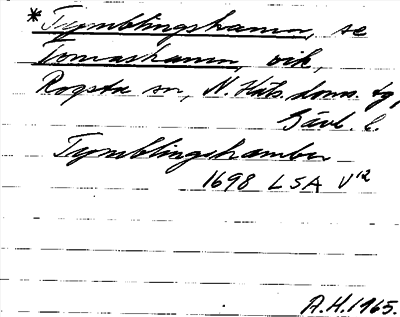 * Tymblingshamn, se
Tomashamn, vik,
Rogsta sn, N. Häls. doms. tg,
Gävl. l.
Tymblingshambn
1698 LSA V12
A.H. 1965.